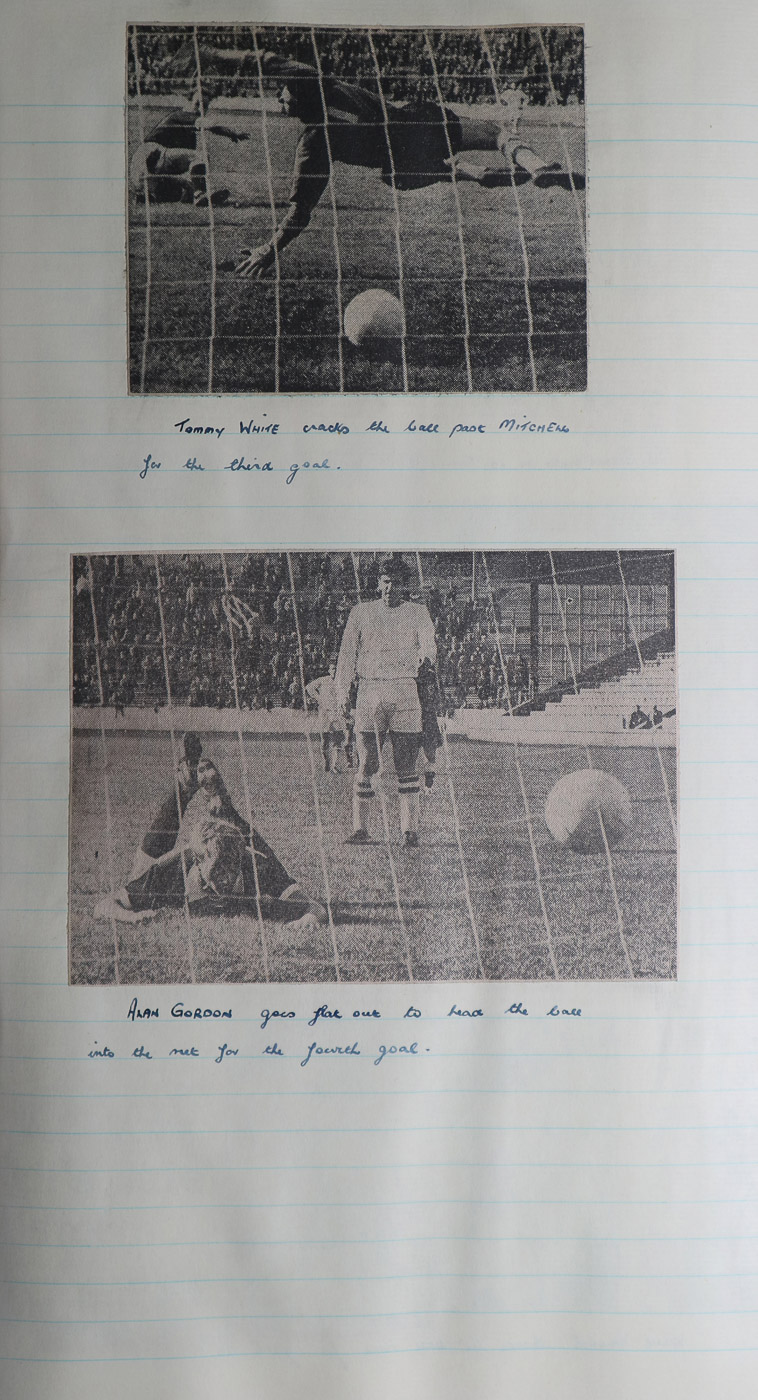 Tommy WHITE cracks the ball past MITCHELL
for the third goal.
ALAN GORDON goes flat out to head the ball
into the net for the fourth goal.